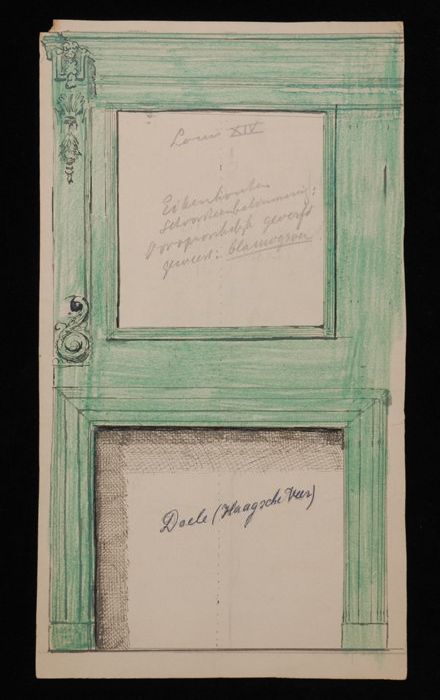 Louis XIV
Eikenhouten
schoorsteenbetimmering:
oorspronkelijk geverfd
geweest: blauwgroen
Doele (Haagsche Veer)